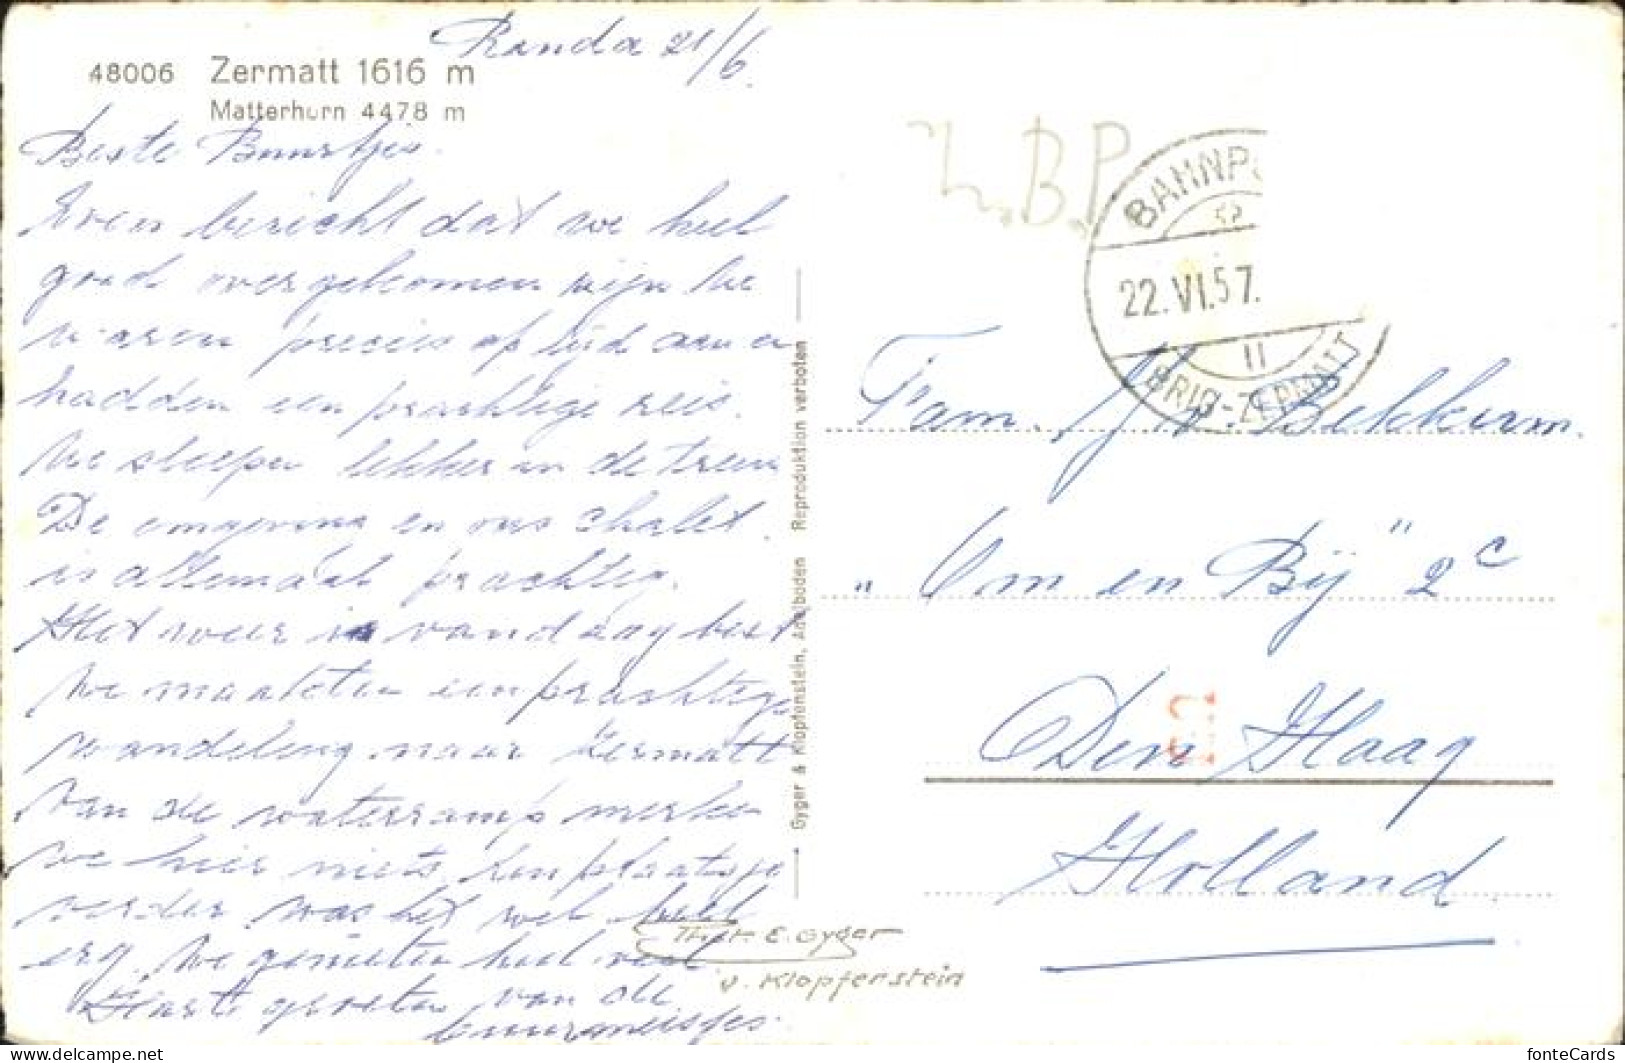 Randa 21/6.
48006 Zermatt 1616 m
Matterhorn 4478 m
Beste Buurtjes.
Even bericht dat we heel
goed overgekomen zijn. We
waren precies op tijd aan en
hadden een prachtige reis.
We sleepen lekker in de trein
De omgeving en ons chalet
is allemaal prachtig.
Het weer is vandaag best
We maakten een prachtige
wandeling naar Zermatt
van de waterramp merken
we hier niets. Een plaatsje
verder was het wel heel
erg. We genieten heel veel
Hart. groeten van de
buurmeisjes.
Gyger & Klopfenstein, Adelboden Reproduktion verboten
Phot. E. Gyger
v. Klopfenstein
Z.B.P.
BAHNPO
22.VI.57.
11
BRIG-ZERMATT
Fam. Bekkerm.
„Om en Bij" 2c
Den Haag
Holland
fonteCards
www.delcampe.net